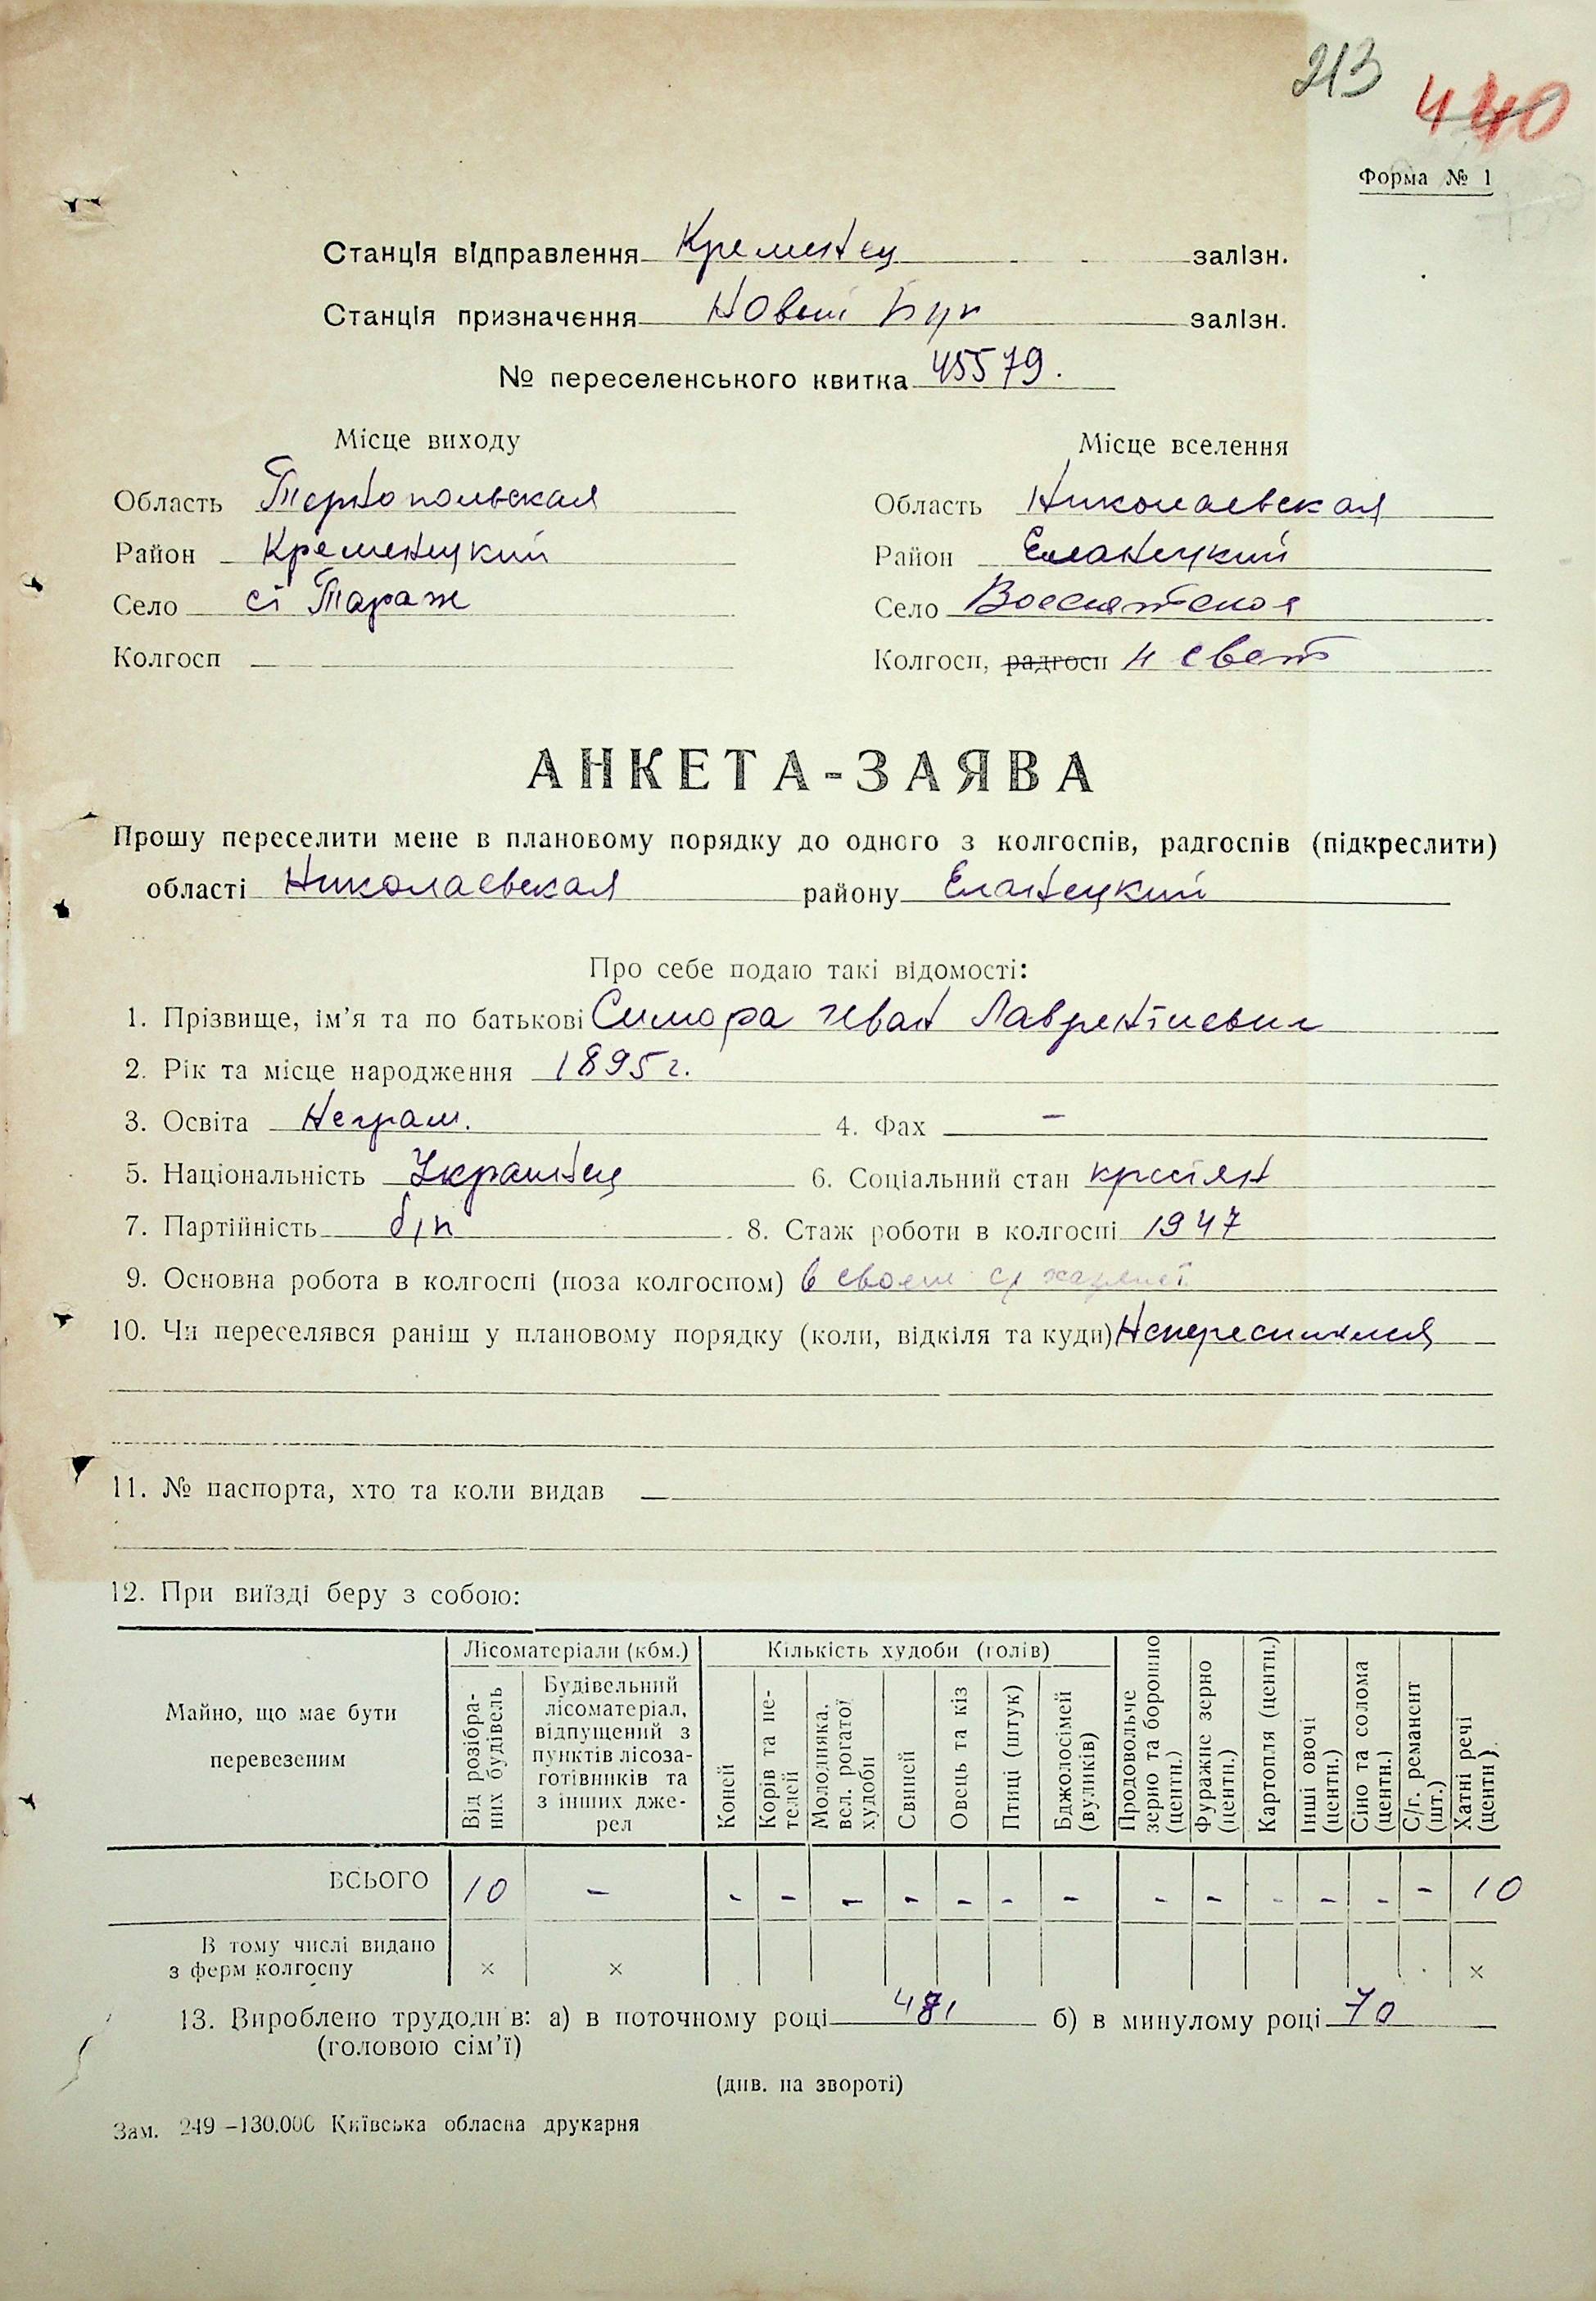 213
440
Форма № 1
Станція відправлення Кременец залізн.
Станція призначення Новый Буг залізн.
№ переселенського квитка 45579.
Місце виходу
Місце вселення
Область Тернопольская
Область Николаевская
Район Кременецкий
Район Еланецкий
Село с. Тараж
Село
Колгосп —
Колгосп, радгосп
АНКЕТА-ЗАЯВА
Прошу переселити мене в плановому порядку до одного з колгоспів, радгоспів (підкреслити)
області Николаевская району Еланецкий
Про себе подаю такі відомості:
1. Прізвище, ім’я та по батькові Симора Иван Лаврентиевич
2. Рік та місце народження 1895 г.
3. Освіта Неграм. 4. Фах —
5. Національність Украинец 6. Соціальний стан крстян
7. Партійність б/п 8. Стаж роботи в колгоспі 1947
9. Основна робота в колгоспі (поза колгоспом) в своем
10. Чи переселявся раніш у плановому порядку (коли, відкіля та куди)
11. № паспорта, хто та коли видав —
12. При виїзді беру з собою:
Майно, що має бути перевезеним
Лісоматеріали (кбм.)
Від розібраних будівель
Будівельний лісоматеріал, відпущений з пунктів лісозаготівників та з інших джерел
Кількість худоби (голів)
Коней
Корів та нетелей
Молодняка, вел. рогатої худоби
Свиней
Овець та кіз
Птиці (штук)
Бджолосімей (вуликів)
Продовольче зерно та борошно (центн.)
Фуражне зерно (центн.)
Картопля (центн.)
Інші овочі (центн.)
Сіно та солома (центн.)
С/г. реманент (шт.)
Хатні речі (центн.)
ВСЬОГО 10 - - - - - - - - - - - - - - 10
В тому числі видано
з ферм колгоспу × × ×
13. Вироблено трудоднів: а) в поточному році 481 б) в минулому році 70
(головою сім’ї)
(див. на звороті)
Зам. 249—130.000 Київська обласна друкарня